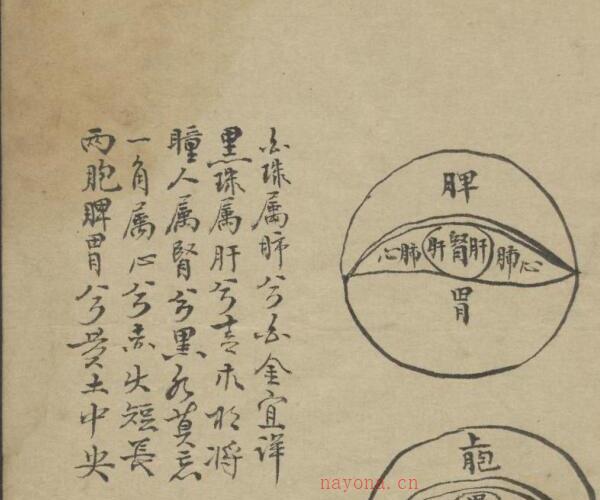 脾
心肺肝腎肝肺心
胃
上胞
白珠属肺兮白金宜詳
黑珠属肝兮青木将
瞳人属腎兮黑水莫忘
一角属心兮赤火短長
两胞脾胃兮黄土中央
nayona.cn